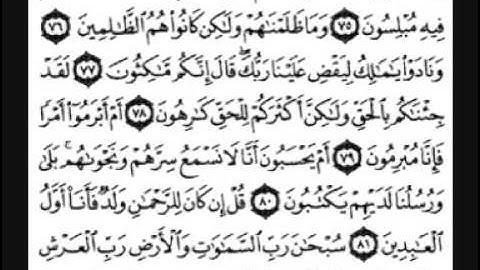 فِيهِ مُبْلِسُونَ ٧٥ وَمَا ظَلَمْنَٰهُمْ وَلَٰكِن كَانُوا۟ هُمُ ٱلظَّٰلِمِينَ ٧٦
وَنَادَوْا۟ يَٰمَٰلِكُ لِيَقْضِ عَلَيْنَا رَبُّكَ ۖ قَالَ إِنَّكُم مَّٰكِثُونَ ٧٧ لَقَدْ
جِئْنَٰكُم بِٱلْحَقِّ وَلَٰكِنَّ أَكْثَرَكُمْ لِلْحَقِّ كَٰرِهُونَ ٧٨ أَمْ أَبْرَمُوٓا۟ أَمْرًا
فَإِنَّا مُبْرِمُونَ ٧٩ أَمْ يَحْسَبُونَ أَنَّا لَا نَسْمَعُ سِرَّهُمْ وَنَجْوَىٰهُم ۚ بَلَىٰ
وَرُسُلُنَا لَدَيْهِمْ يَكْتُبُونَ ٨٠ قُلْ إِن كَانَ لِلرَّحْمَٰنِ وَلَدٌ فَأَنَا۠ أَوَّلُ
ٱلْعَٰبِدِينَ ٨١ سُبْحَٰنَ رَبِّ ٱلسَّمَٰوَٰتِ وَٱلْأَرْضِ رَبِّ ٱلْعَرْشِ